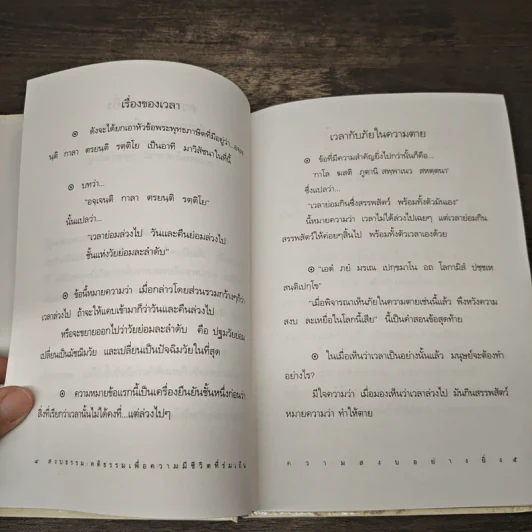 เรื่องของเวลา
๏ ดังจะได้ยกเอาหัวข้อพระพุทธภาษิตที่มีอยู่ว่า...
นฺติ กาลา ตรยนฺติ รตฺติโย เป็นอาทิ มาวิสัชนาในที่นี้
๏ บทว่า...
"อจฺเจนฺติ กาลา ตรยนฺติ รตฺติโย"
นั้นแปลว่า...
"เวลาย่อมล่วงไป วันและคืนย่อมล่วงไป
ชั้นแห่งวัยย่อมละลำดับ"
๏ ข้อนี้หมายความว่า เมื่อกล่าวโดยส่วนรวมกว้างๆก็ว่า
เวลาล่วงไป ถ้าจะให้แคบเข้ามาก็ว่าวันและคืนล่วงไป
หรือจะขยายออกไปว่าวัยย่อมละลำดับ คือ ปฐมวัยย่อม
เปลี่ยนเป็นมัชฌิมวัย และเปลี่ยนเป็นปัจฉิมวัยในที่สุด
๏ ความหมายข้อแรกนี้เป็นเครื่องยืนยันชั้นหนึ่งก่อนว่า
สิ่งที่เรียกว่าเวลานั้นไม่ได้คงที่...แต่ล่วงไปๆ
๔ สงบธรรม:คติธรรมเพื่อความมีชีวิตที่ร่มเย็น
เวลากับภัยในความตาย
๏ ข้อที่มีความสำคัญยิ่งไปกว่านั้นก็คือ...
"กาโล ฆสติ ภูตานิ สพฺพาเนว สหตฺตนา"
ซึ่งแปลว่า...
"เวลาย่อมกินซึ่งสรรพสัตว์ พร้อมทั้งตัวมันเอง"
นี้หมายความว่า เวลาไม่ได้ล่วงไปเฉยๆ แต่เวลาย่อมกิน
สรรพสัตว์ให้ค่อยๆสิ้นไป พร้อมทั้งตัวเวลาเองด้วย
๏ "เอตํ ภยํ มรเณ เปกฺขมาโน อถ โลกามิสํ ปชฺชเห
สนฺติเปกฺโข"
"เมื่อพิจารณาเห็นภัยในความตายเช่นนี้แล้ว พึงหวังความ
สงบ ละเหยื่อในโลกนี้เสีย" นี้เป็นคำสอนข้อสุดท้าย
๏ ในเมื่อเห็นว่าเวลาเป็นอย่างนั้นแล้ว มนุษย์จะต้องทำ
อย่างไร?
มีใจความว่า เมื่อมองเห็นว่าเวลาล่วงไป มันกินสรรพสัตว์
หมายความว่า ทำให้ตาย
ความสงบอย่างยิ่ง ๕